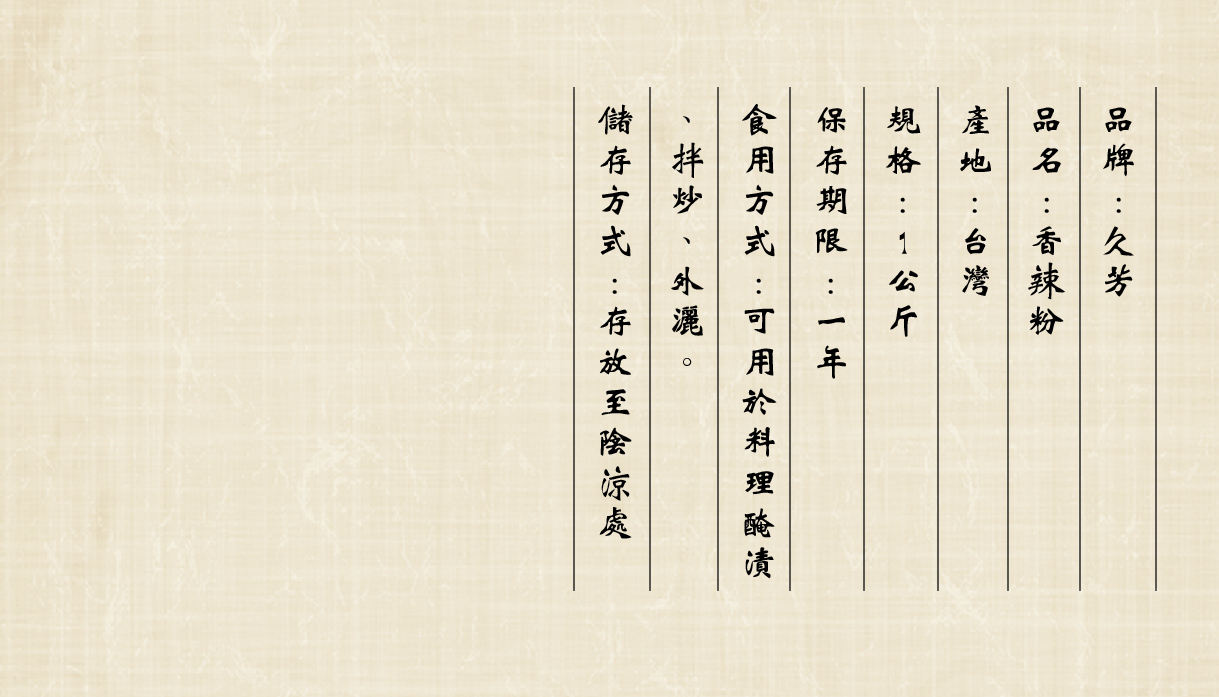 品牌：久芳
品名：香辣粉
產地：台灣
規格：1公斤
保存期限：一年
食用方式：可用於料理醃漬
、拌炒、外灑。
儲存方式：存放至陰涼處